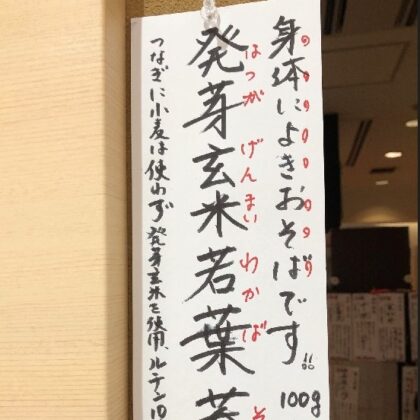 身体によきおそばです!!
100g
発芽玄米若葉
はつが げんまい わかば そ
つなぎに小麦は使わず発芽玄米を使用、ルテン10